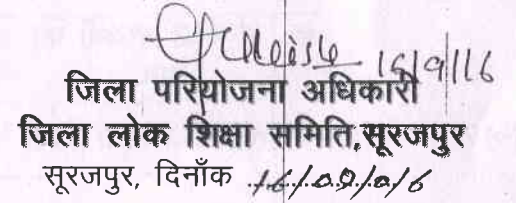 16/9/16
जिला परियोजना अधिकारी
जिला लोक शिक्षा समिति,सूरजपुर
सूरजपुर, दिनाँक 16/09/016